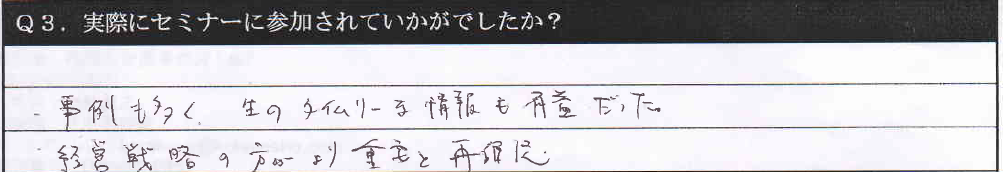 Q3．実際にセミナーに参加されていかがでしたか？
・事例も多く、生のタイムリーな情報も有益だった。
・経営戦略の方がより重要と再確認